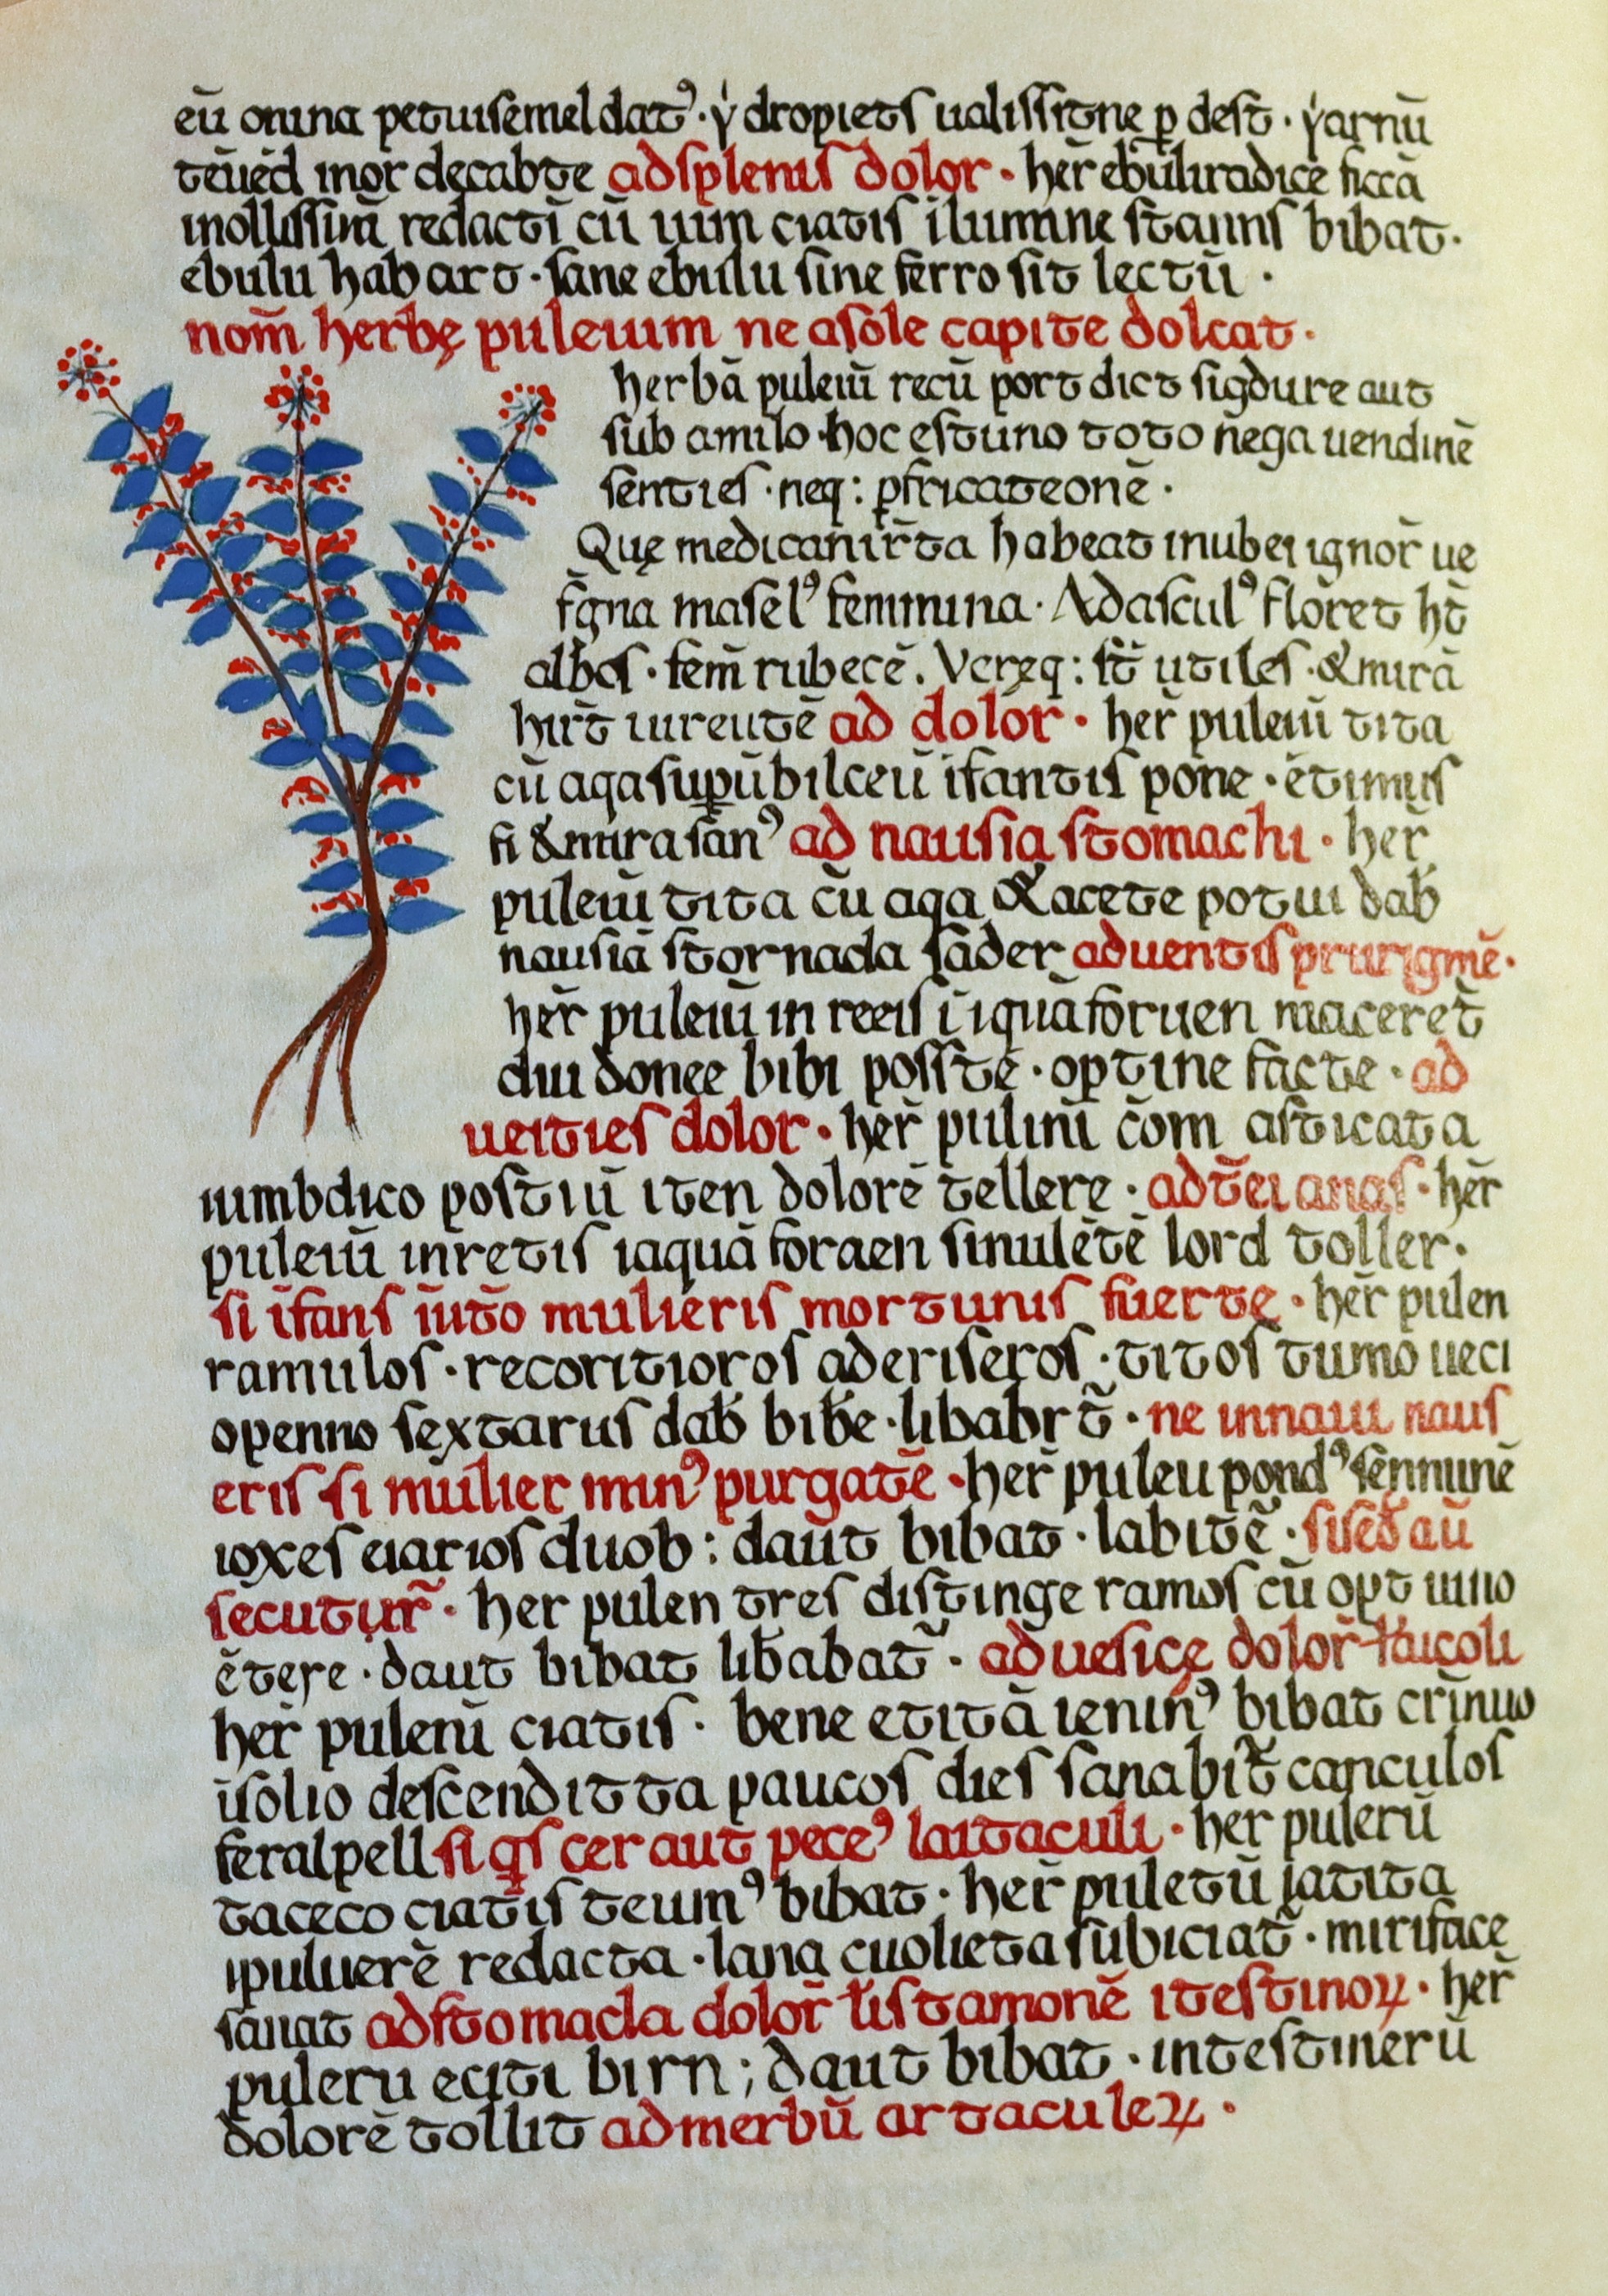 eū onina petuisemel dat⁹ · ẏ dropiets ualissitne ꝑ dest · ẏarnū
tēuēd inor decabte adsplenis dolor · her̄ ebuliradicē ficcā
mollissim̄ redactī cū uim ciatis ilumine stannis bibat ·
ebulu hab art · sane ebulu sine ferro sit lectū ·
nom̄ herbę puleium ne asole capite dolcat ·
herbā puleiū recū port dict sigdure aut
sub amilo · hoc estuno toto nēga uendinē
senties · neq: ꝑfricateonē ·
Quę medicanir̄ta habeat inubei ignor̄ ue
f̄gna masel⁹ feminina · Adascul⁹ flor̄et ht̄
albos · fem̄ rubecē . Vcręq: st̄ utiles · &mirā
hirt̄ iureutē ad dolor · her̄ puleiū tita
cū aqasuꝑūbilceū īfantis pone · ētimus
fi &mira san⁹ ad nausia stomachi · her̄
puleiū tita cū aqa &acete potui dab̄
nausiā stornada sāder aduentis prurigmē ·
her̄ puleiū in reeis ī iquāforuen maceret̄
diu donee bibi posstē · optine facte · ad
ueities dolor · her̄ pulinī c̄om asticata
iumbdico postiū iten dolorē tellere · adt̄ei anas · her̄
puleiū inretis iaquā foraen sinulētē lord toller ·
si īfans īut̄o mulieris mortunis fuerte · her̄ pulen
ramulos · recoritioros aderiseros · titos tumo ueci
openno sextarus dab̄ bib̄e · libabr t̄ · ne innaui naus
eris si mulier min⁹ purgatē · her̄ puleu pond⁹ sennunē
ioxes eiarios duob : daūt bibat · labitē · sised au̅
secutur̄ · her pulen tres distinge ramos cū opt uino
ētere · daut bibat lib̄abat̄ · aduesicę dolor̄ ƚauicoli
her̄ pulenī ciatis · bene etitā ienin⁹ bibat crīnuo
īisolio descendit ta paucos dies sanabit̄ canculos
feralpell si q̄s cer aut pece⁹ laitaculi · her̄ pulerū
taceco ciatis teum⁹ bibat · her̄ puletū jatita
ipuluerē redacta · lana cuolieta subiciat̄ · miriface
sanat adstomacla dolor̄ ƚistamonē itestinoꝝ · her̄
puleru eciti birn ; daut bibat · intestinerū
dolorē tollit admerbū artaculeꝝ ·